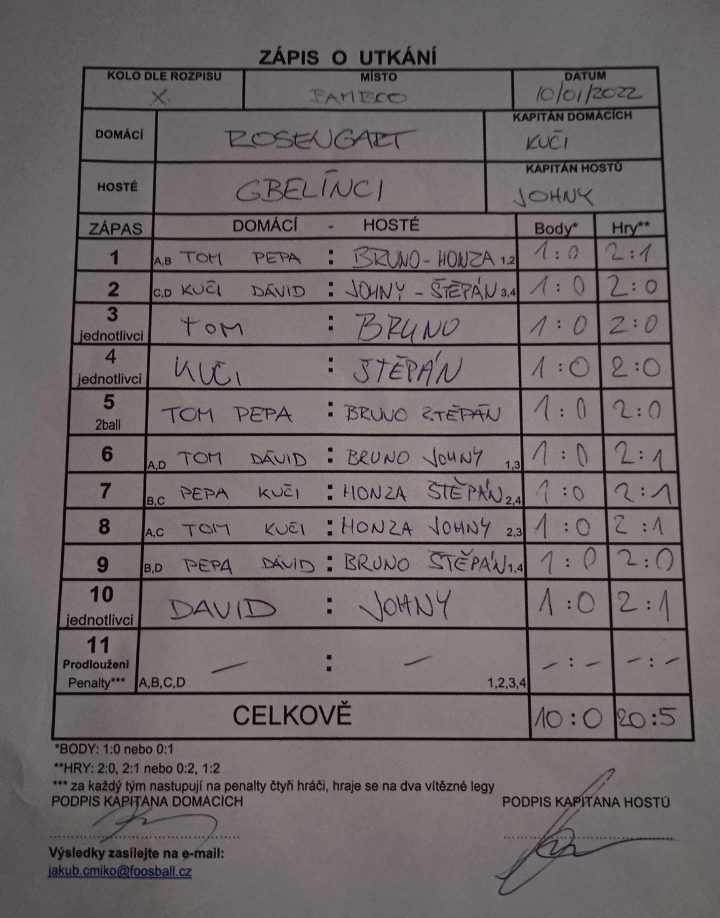 ZÁPIS O UTKÁNÍ
KOLO DLE ROZPISU MÍSTO DATUM
X. BAMBOO 10/01/2022
DOMÁCÍ ROSENGART KAPITÁN DOMÁCÍCH
KUČI
HOSTÉ GBELÍNCI KAPITÁN HOSTŮ
JOHNY
ZÁPAS DOMÁCÍ - HOSTÉ Body* Hry**
1 A,B TOM PEPA : BRUNO - HONZA 1,2 1:0 2:1
2 C,D KUČI DÁVID : JOHNY - ŠTĚPÁN 3,4 1:0 2:0
3 jednotlivci TOM : BRUNO 1:0 2:0
4 jednotlivci KUČI : ŠTĚPÁN 1:0 2:0
5 2ball TOM PEPA : BRUNO ŠTĚPÁN 1:0 2:0
6 A,D TOM DÁVID : BRUNO JOHNY 1,3 1:0 2:1
7 B,C PEPA KUČI : HONZA ŠTĚPÁN 2,4 1:0 2:1
8 A,C TOM KUČI : HONZA JOHNY 2,3 1:0 2:1
9 B,D PEPA DÁVID : BRUNO ŠTĚPÁN 1,4 1:0 2:0
10 jednotlivci DAVID : JOHNY 1:0 2:1
11
Prodloužení
Penalty*** A,B,C,D — : — 1,2,3,4 -:- -:-
CELKOVĚ 10:0 20:5
*BODY: 1:0 nebo 0:1
**HRY: 2:0, 2:1 nebo 0:2, 1:2
*** za každý tým nastupují na penalty čtyři hráči, hraje se na dva vítězné legy
PODPIS KAPITÁNA DOMÁCÍCH PODPIS KAPITÁNA HOSTŮ
Výsledky zasílejte na e-mail:
jakub.cmiko@foosball.cz